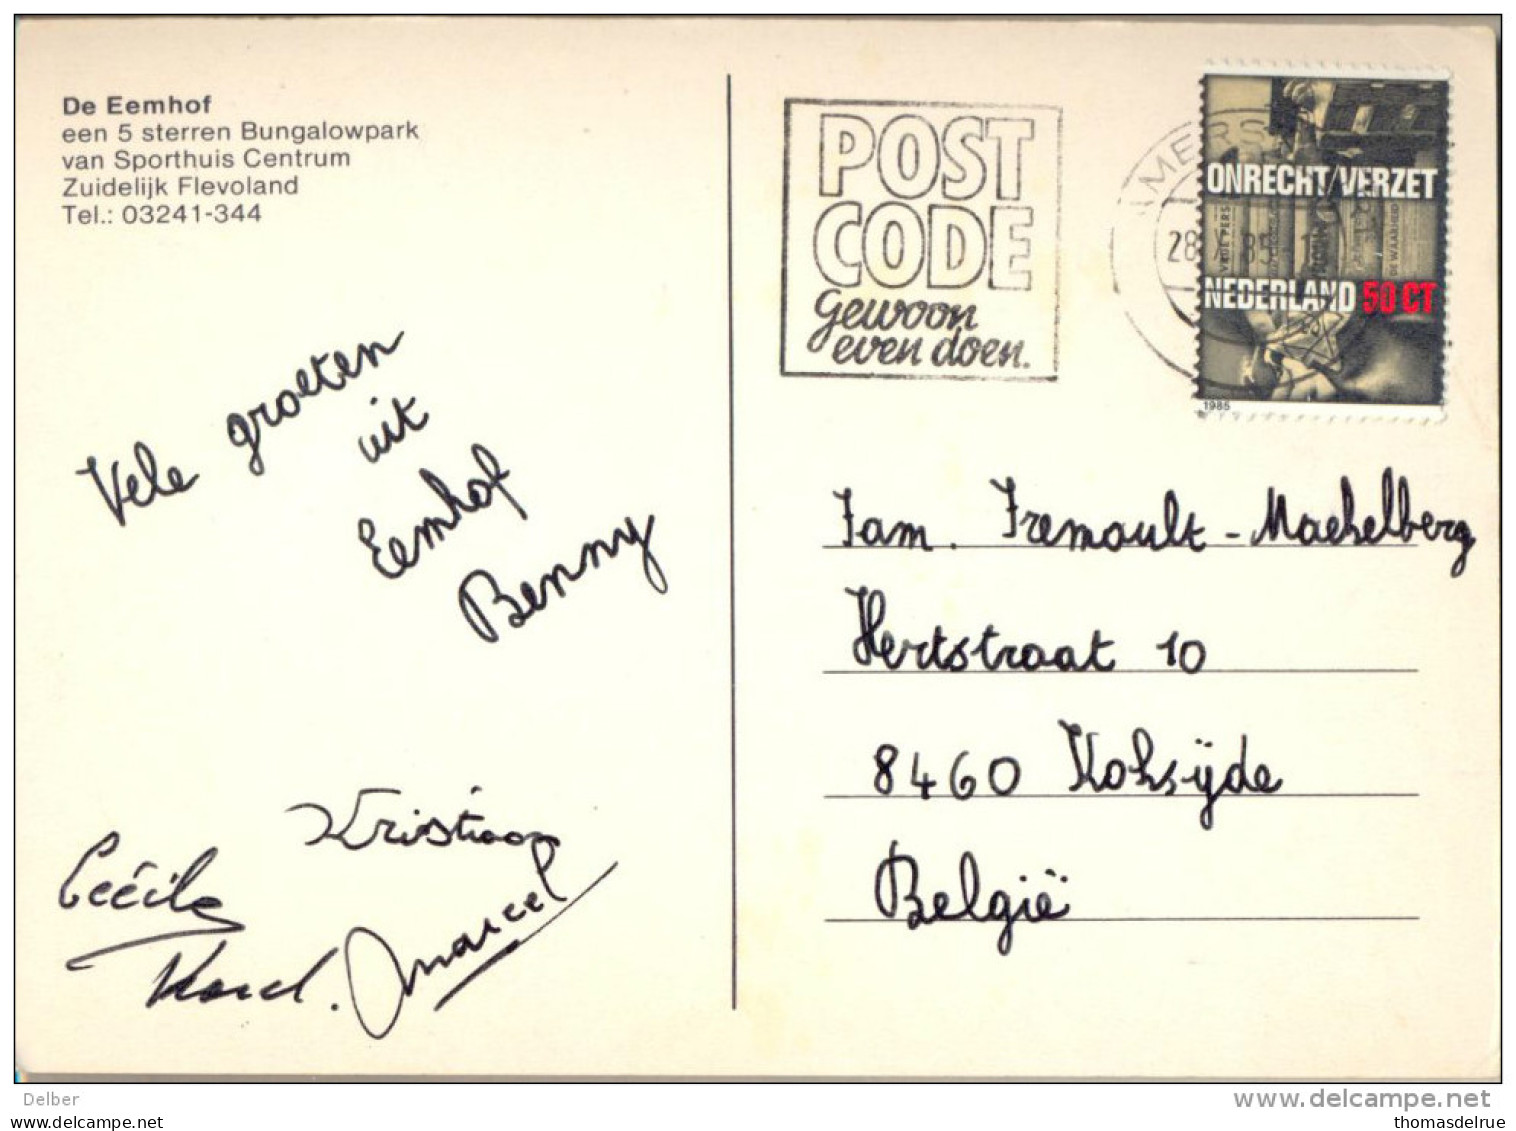 De Eemhof
een 5 sterren Bungalowpark
van Sporthuis Centrum
Zuidelijk Flevoland
Tel.: 03241-344
POST
CODE
gewoon
even doen.
AMERS
28 85
ONRECHT/VERZET
VRIJE PERS
DE WAARHEID
NEDERLAND 50 CT
1985
Vele groeten
uit
Eemhof
Benny
Kristiaan
Cécile
Karel. Marcel
Fam. Fremault-Maekelberg
Hertstraat 10
8460 Koksijde
België
Delber
www.delcampe.net
maurice-8670
thomasdelrue